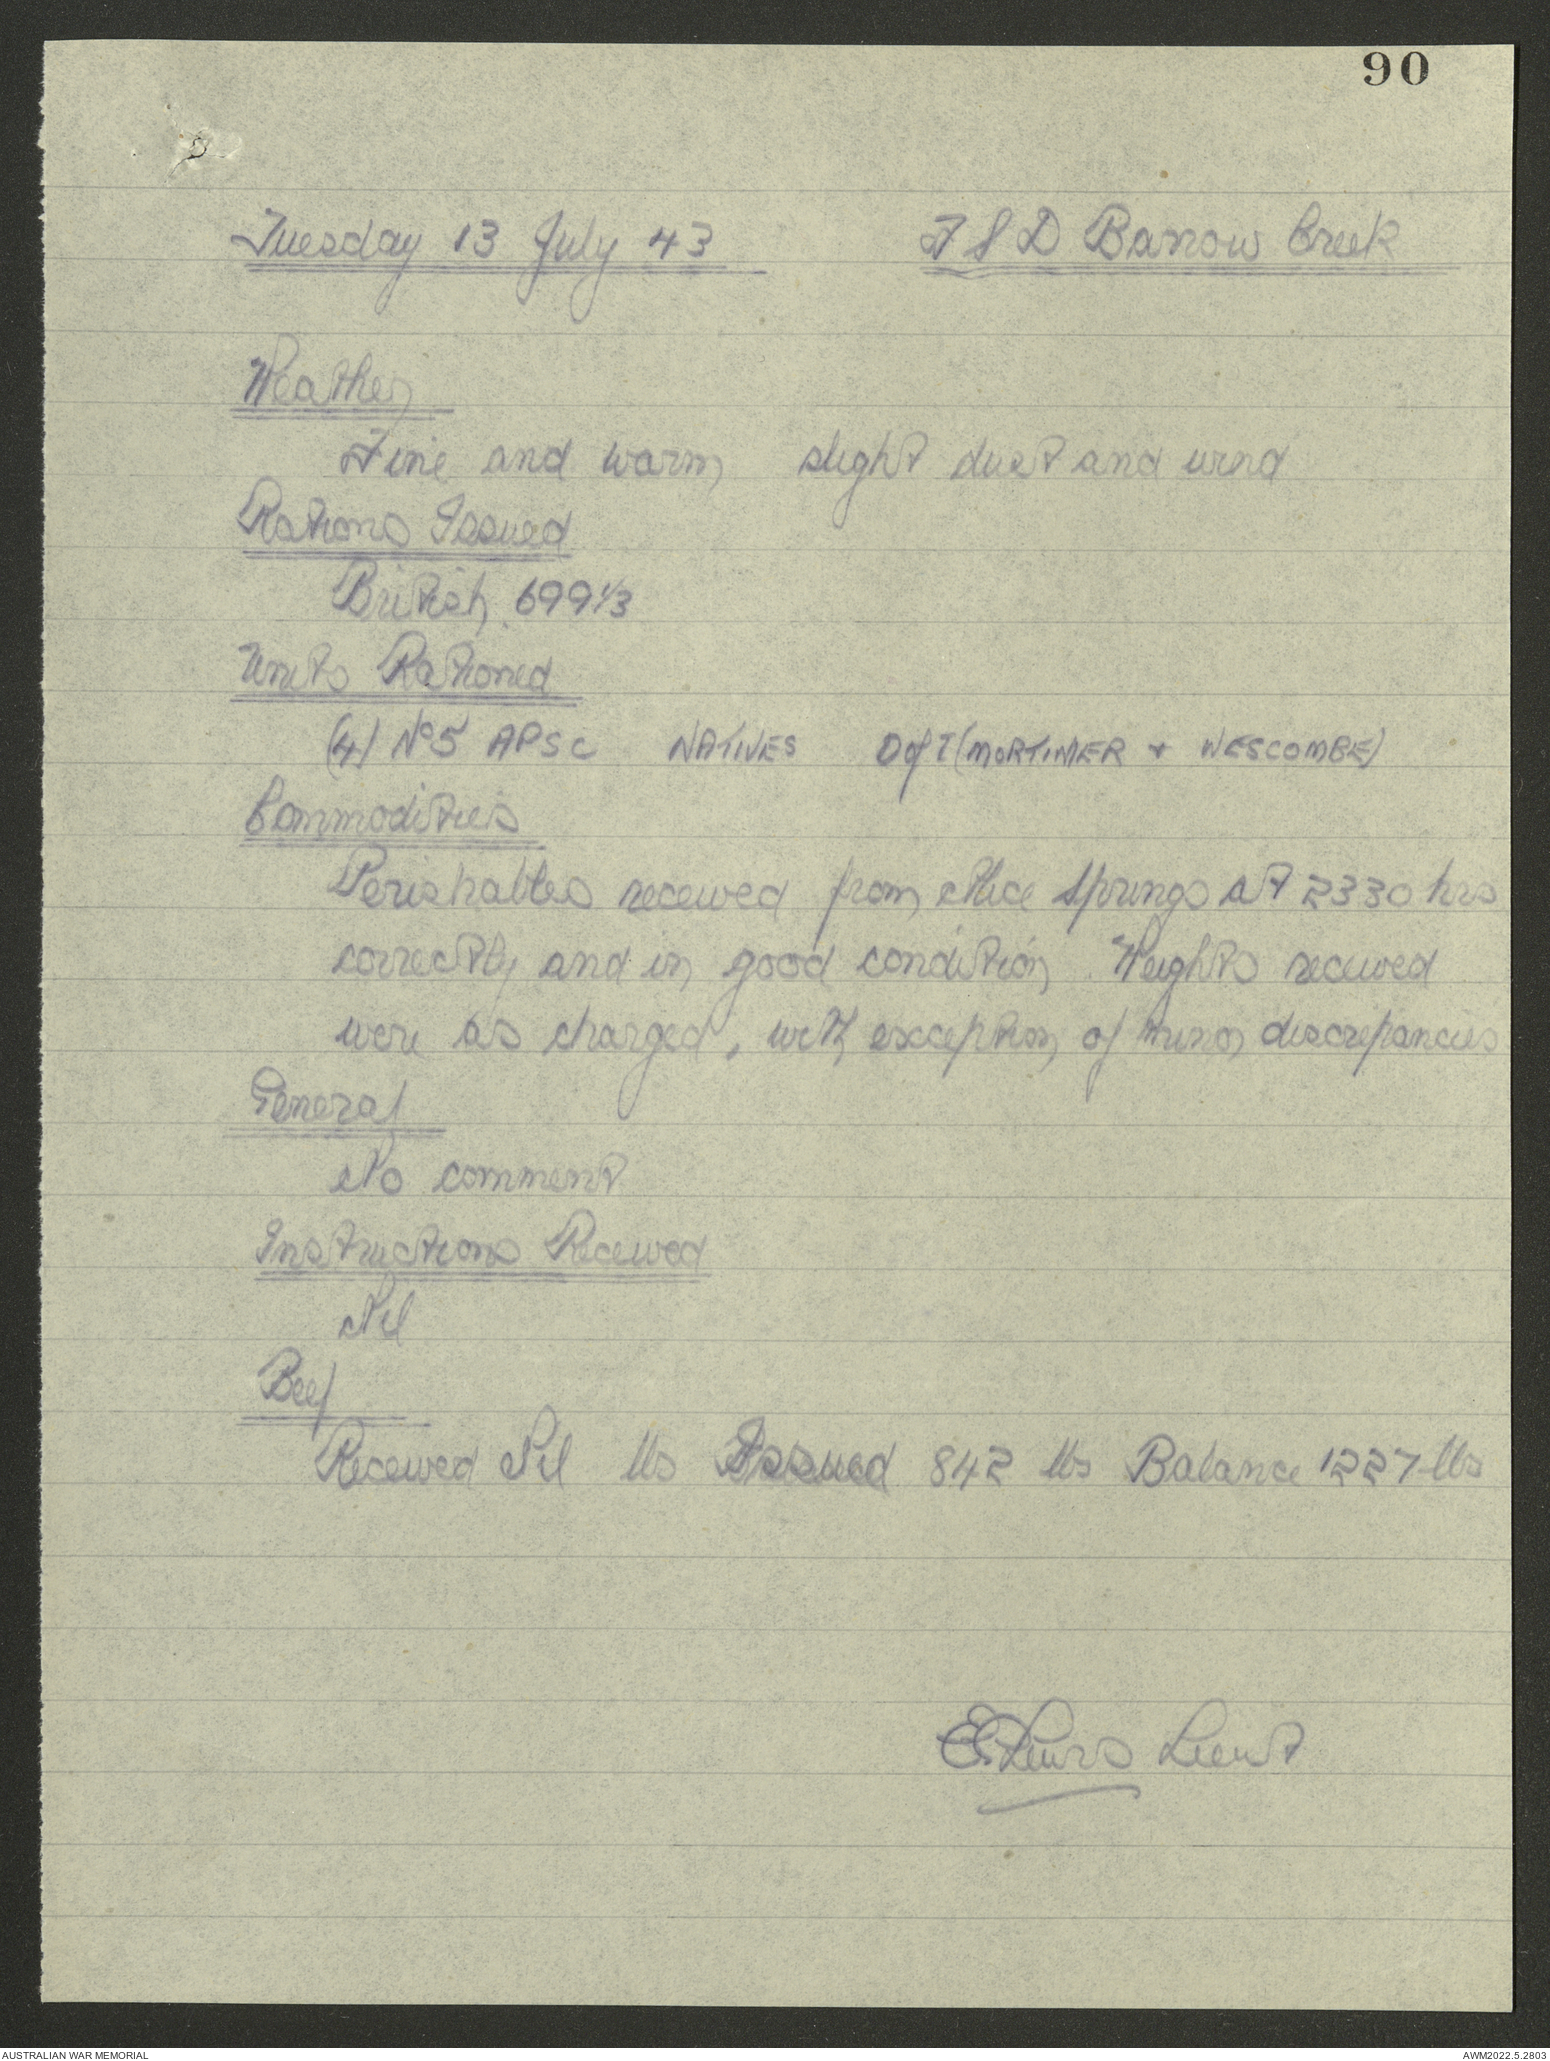 90
Tuesday 13 July 43 F S D Barrow Creek
Weather
Fine and warm slight dust and wind
Rations Issued
British 699 1/3
Units Rationed
(4) No 5 APSC NATIVES D of T (MORTIMER + WESCOMBE)
Commodities
Perishables received from Alice Springs at 2330 hrs
correctly and in good condition. Weights received
were as charged, with exception of minor discrepancies
General
No comment
Instructions Received
Nil
Beef
Received Nil lbs Issued 842 lbs Balance 1227 lbs
Lewis Lieut
AUSTRALIAN WAR MEMORIAL AWM2022.5.2803